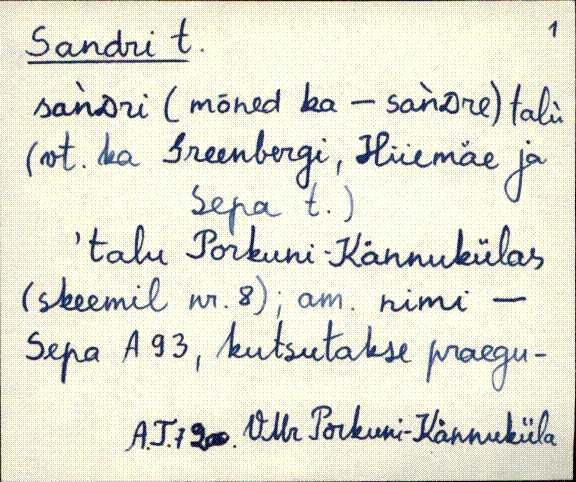 1
Sandri t.
sàndri (mõned ka – sàndre) talù
(vt. ka Greenbergi, Hiiemäe ja
Sepa t.)
'talu Porkuni-Kännukülas
(skeemil nr. 8); am. nimi –
Sepa A 93, kutsutakse praegu-
A.T. VMr Porkuni-Kännuküla